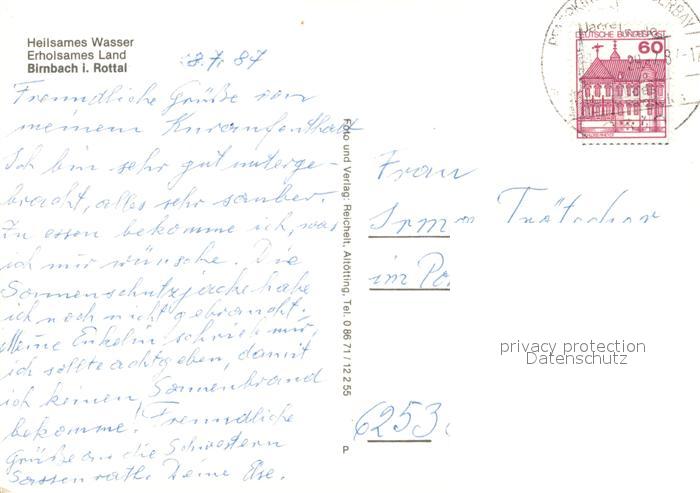 Heilsames Wasser
Erholsames Land
Birnbach i. Rottal
8.7.87
Freundliche Grüße von
meinem Kuraufenthalt
Ich bin sehr gut unterge-
bracht, alles sehr sauber.
Zu essen bekomme ich, was
ich mir wünsche. Die
Sonnenschutzjacke habe
ich noch nicht gebraucht.
Meine Enkelin schrieb mir,
ich sollte achtgeben, damit
ich keinen Sonnenbrand
bekomme! Freundliche
Grüße an die Schwestern
Deine Else.
Foto und Verlag: Reichelt, Altötting, Tel. 0 86 71 / 12 2 55
P
DEUTSCHE BUNDESPOST
60
Frau
Irma
im
6253
privacy protection
Datenschutz